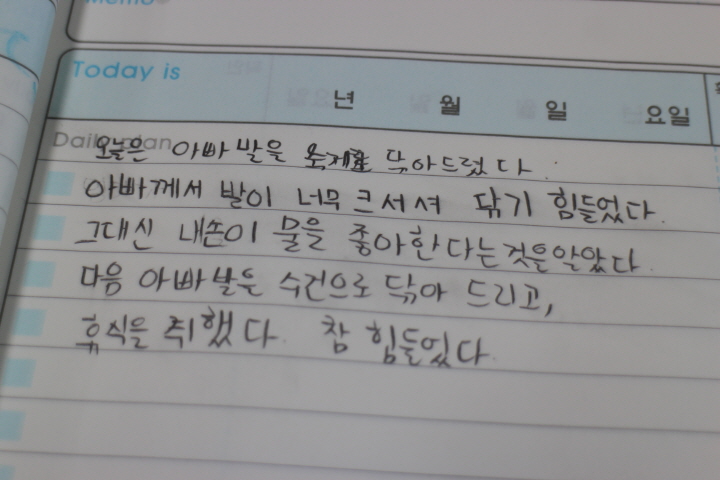 Memo
Today is
년 월 일 요일
Daily plan
오늘은 아빠 발을 닦아드렸다.
아빠께서 발이 너무 크서셔 닦기 힘들었다.
그대신 내손이 물을 좋아한다는것을알았다.
다음 아빠발을 수건으로 닦아 드리고,
휴식을 취했다. 참 힘들었다.